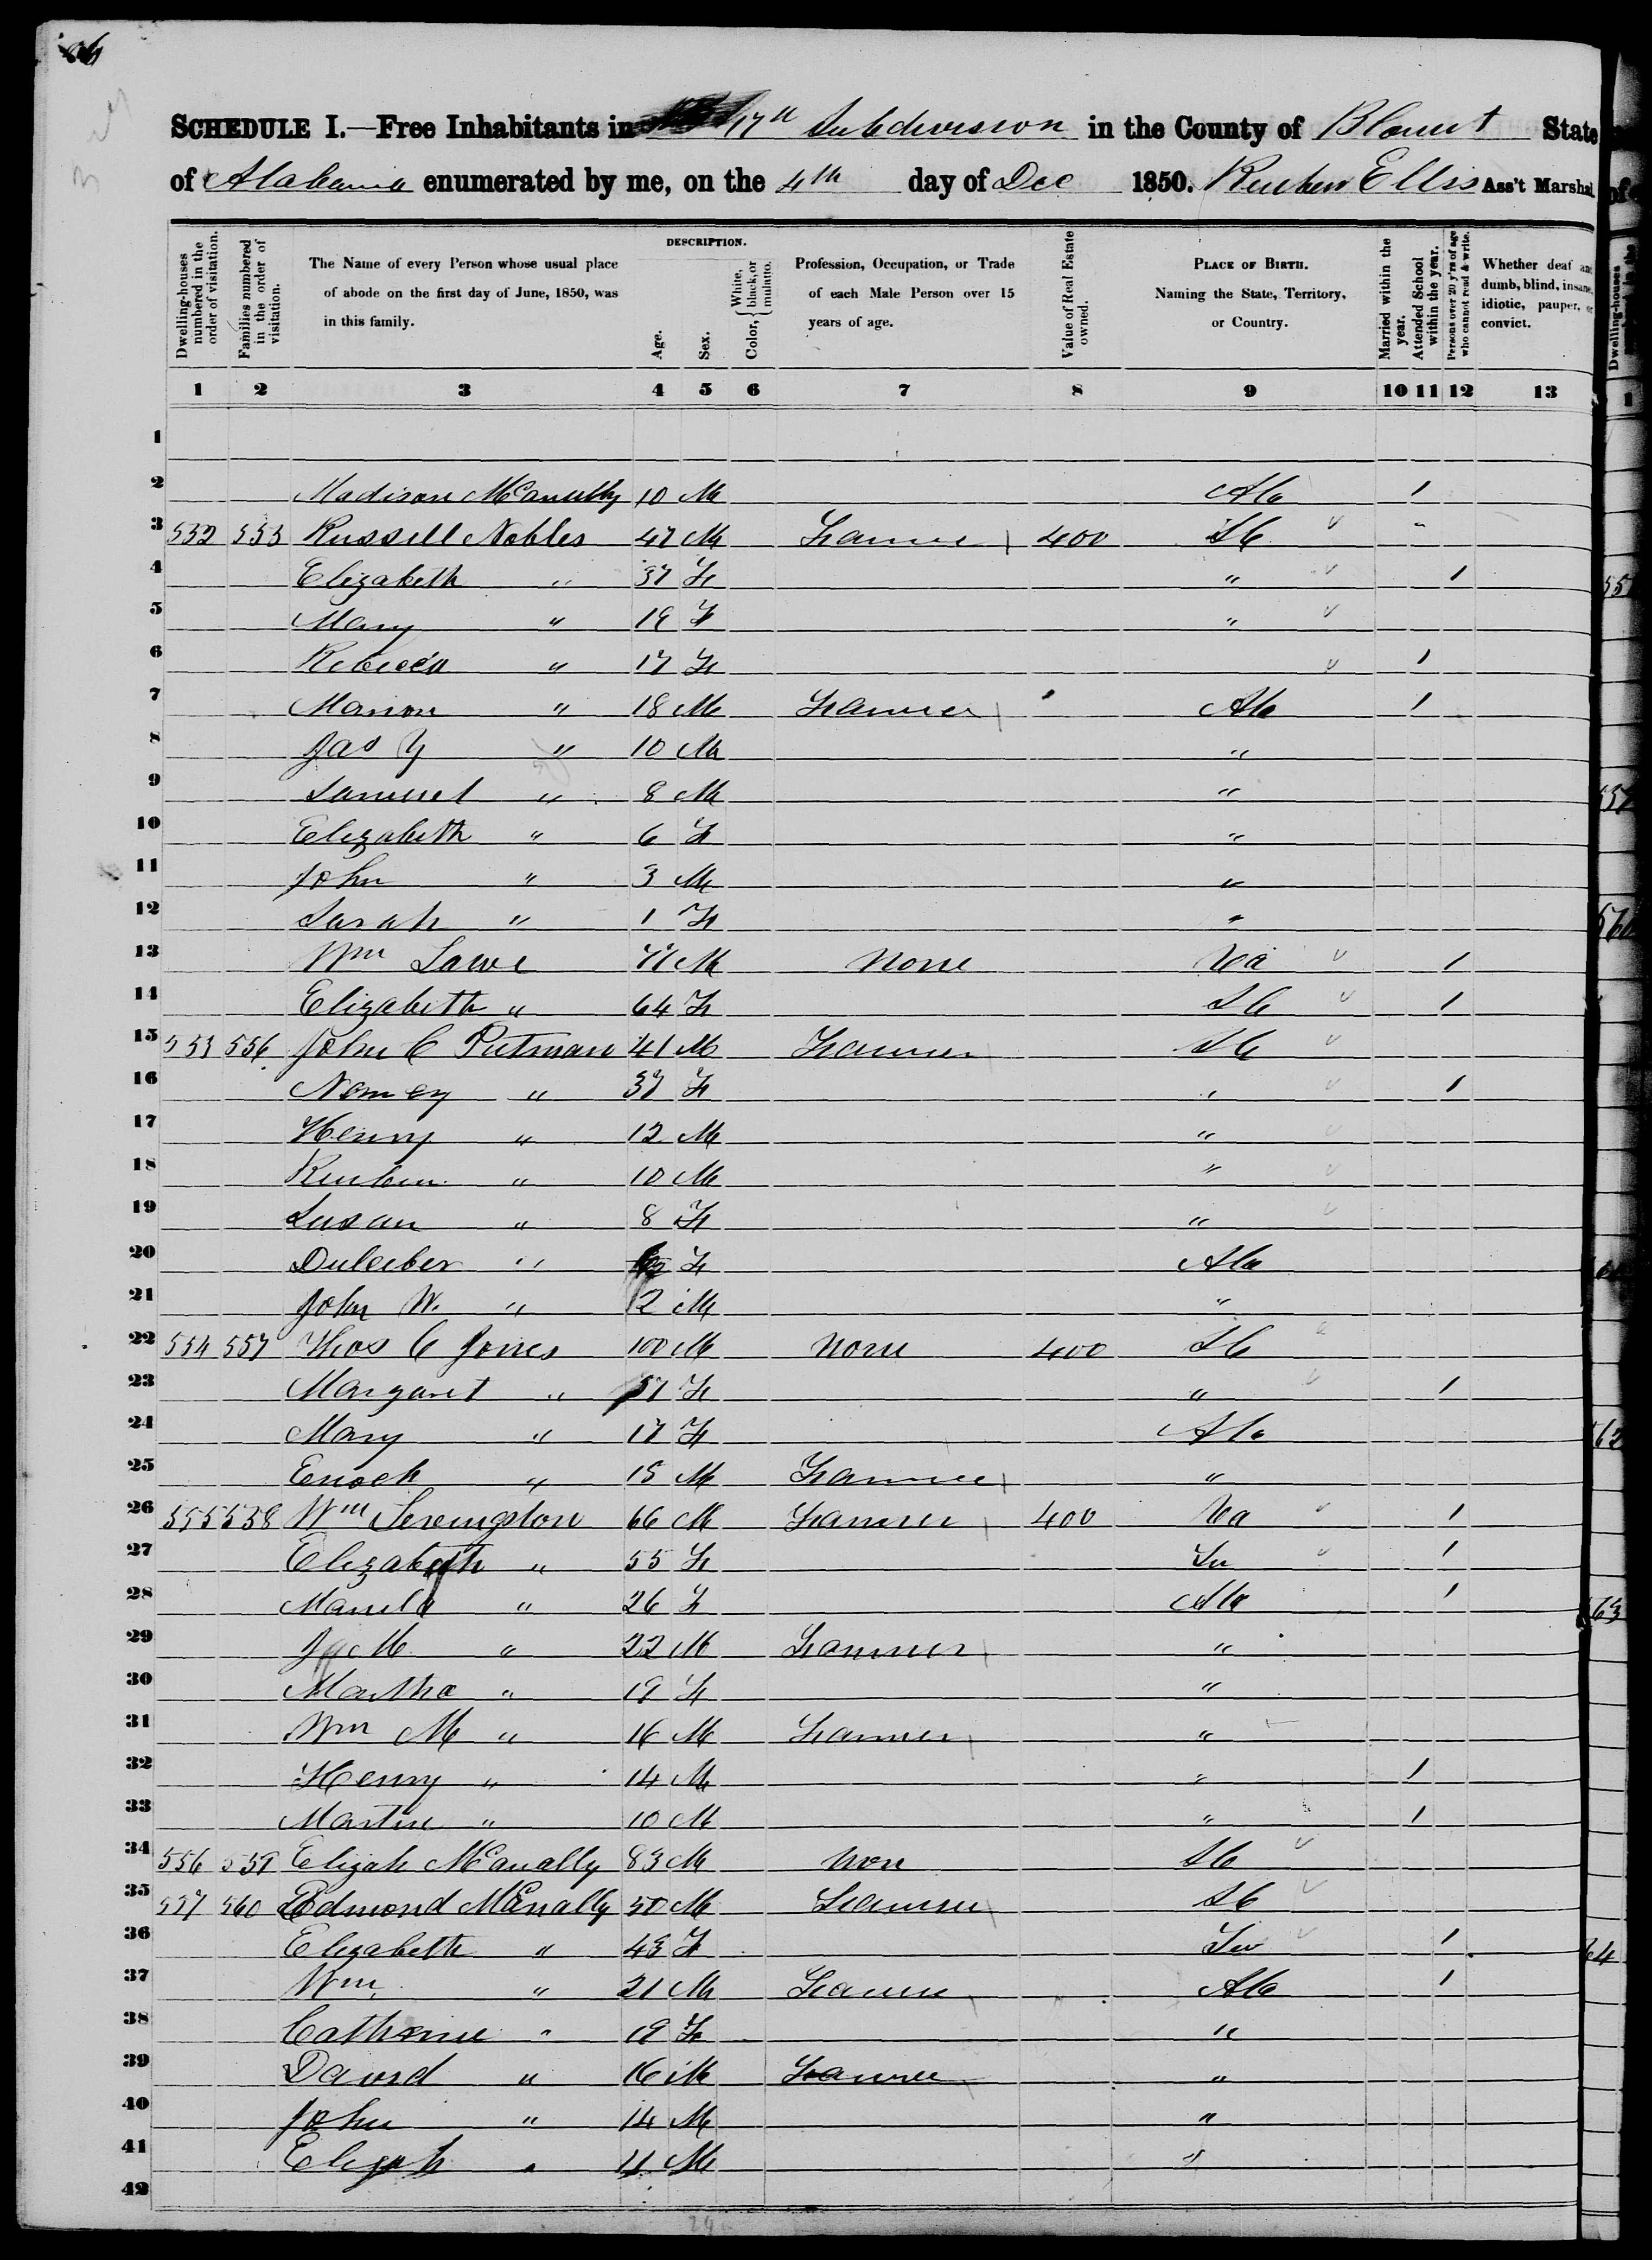 SCHEDULE I.—Free Inhabitants in 17th Subdivision in the County of Blount State
of Alabama enumerated by me, on the 4th day of Dec 1850. Reuben Ellis Ass't Marshal
Dwelling-houses numbered in the order of visitation.
Families numbered in the order of visitation.
The Name of every Person whose usual place of abode on the first day of June, 1850, was in this family.
DESCRIPTION.
Age.
Sex.
Color, { White, black, or mulatto.
Profession, Occupation, or Trade of each Male Person over 15 years of age.
Value of Real Estate owned.
PLACE OF BIRTH. Naming the State, Territory, or Country.
Married within the year.
Attended School within the year.
Persons over 20 y'rs of age who cannot read & write.
Whether deaf and dumb, blind, insane, idiotic, pauper, or convict.
1 2 3 4 5 6 7 8 9 10 11 12 13
1
2 Madison McAnully 10 M Ala 1
3 532 553 Russell Nobles 47 M Farmer 400 SC "
4 Elizabeth " 37 F " 1
5 Mary " 19 F "
6 Rebecca " 17 F 1
7 Marion " 18 M Farmer Ala 1
8 Jas Y " 10 M "
9 Samuel " 8 M "
10 Elizabeth " 6 F "
11 John " 3 M "
12 Sarah " 1 F "
13 Wm Lawe 77 M None Va 1
14 Elizabeth " 64 F SC 1
15 553 556 John C Putman 41 M Farmer SC
16 Nancy " 37 F " 1
17 Henry " 12 M "
18 Reuben " 10 M "
19 Susan " 8 F "
20 Dulceber " F Ala
21 John W. " 2 M "
22 554 557 Thos C Jones 100 M None 400 SC
23 Margaret " 57 F " 1
24 Mary " 17 F Ala
25 Enoch " 15 M Farmer "
26 555 558 Wm Levingston 66 M Farmer 400 Va 1
27 Elizabeth " 55 F Tn 1
28 " 26 F Ala 1
29 J M " 22 M Farmer "
30 Martha " 19 F "
31 Wm M " 16 M Farmer "
32 Henry " 14 M " 1
33 Martin " 10 M " 1
34 556 559 Elijah McAnally 83 M Non SC
35 557 560 Edmond McAnally 50 M Farmer SC
36 Elizabeth " 43 F Tn 1
37 Wm " 21 M Farmer Ala 1
38 Catherine " 19 F "
39 David " 16 M Farmer "
40 John " 14 M "
41 Elijah " 11 M "
42